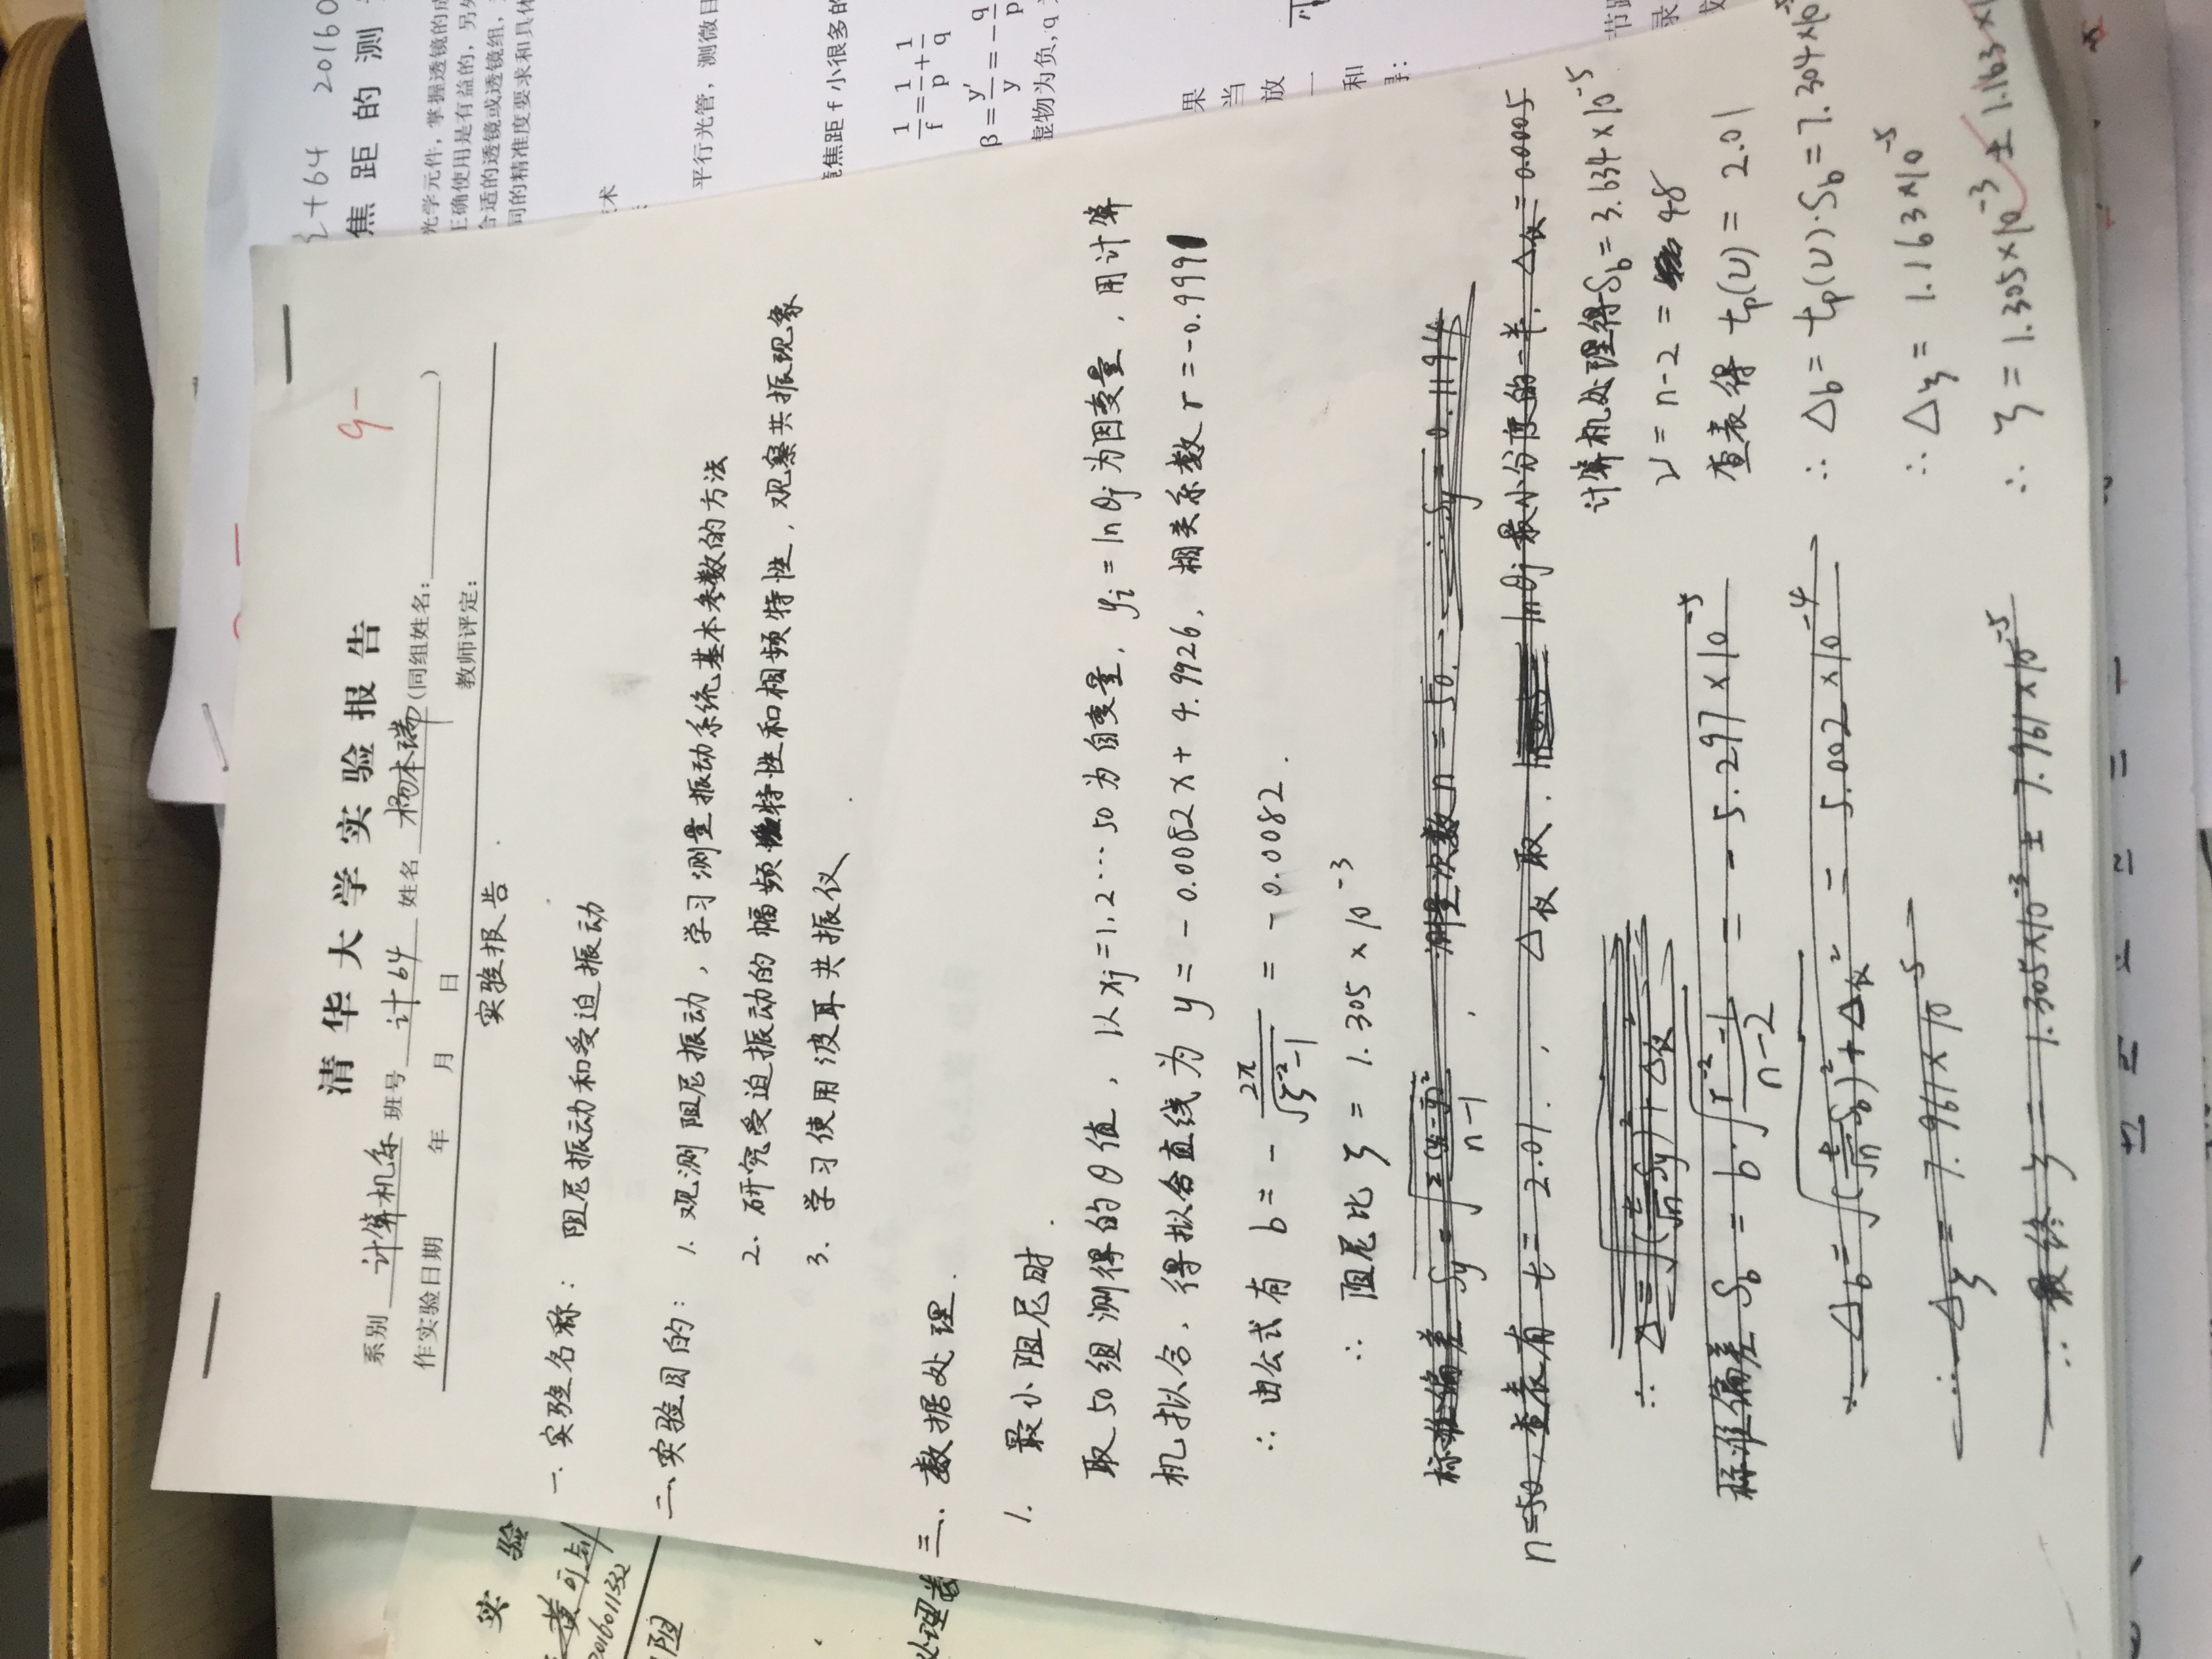 清华大学实验报告
9-
系别 计算机系 班号 计64 姓名 杨本瑞 (同组姓名: )
作实验日期 年 月 日
教师评定:
实验报告
一. 实验名称: 阻尼振动和受迫振动
二、实验目的: 1. 观测阻尼振动, 学习测量振动系统基本参数的方法
2. 研究受迫振动的幅频特性和相频特性, 观察共振现象
3. 学习使用波耳共振仪
三. 数据处理.
1. 最小阻尼时.
取50组测得的θ值, 以xj=1,2…50为自变量, yi=lnθj为因变量, 用计算
机拟合, 得拟合直线为 y = -0.0082x + 4.9926, 相关系数 r = -0.9991
∴ 由公式有 b = - 2π/√(ζ^-2 -1) = -0.0082.
∴ 阻尼比 ζ = 1.305×10^-3
标准偏差 Sy = √(Σ(yi-ȳ)²/(n-1)), 测量次数 n = 50. ∴ Sy = 0.1194
n=50, 查表有 t = 2.01, Δ仪取 lnθj最小分度的一半, Δ仪=0.0005
∴ Δ = √((t/√n Sy)² + Δ仪²)
标准偏差 Sb = b·√((r^-2 -1)/(n-2)) = -5.297×10^-5
∴ Δb = √((t/√n Sb)² + Δ仪²) = 5.002×10^-4
∴ Δζ = 7.961×10^-5
∴ 最终 ζ = 1.305×10^-3 ± 7.961×10^-5
计算机处理得Sb = 3.634×10^-5
ν = n-2 = 48
查表得 tp(ν) = 2.01
∴ Δb = tp(ν)·Sb = 7.304×10^-5
∴ Δζ = 1.163×10^-5
∴ ζ = 1.305×10^-3 ± 1.163×1
实验
黄
2016011332
阻
处理
计64 20160
焦距的测
光学元件, 掌握透镜的成
正确使用是有益的, 另外
合适的透镜或透镜组,
同的精准度要求和具体
术
平行光管, 测微目
焦距 f 小很多的
1/f = 1/p + 1/q
β = y′/y = - q/p
虚物为负, q
果
当
放
一
和
得:
节
录